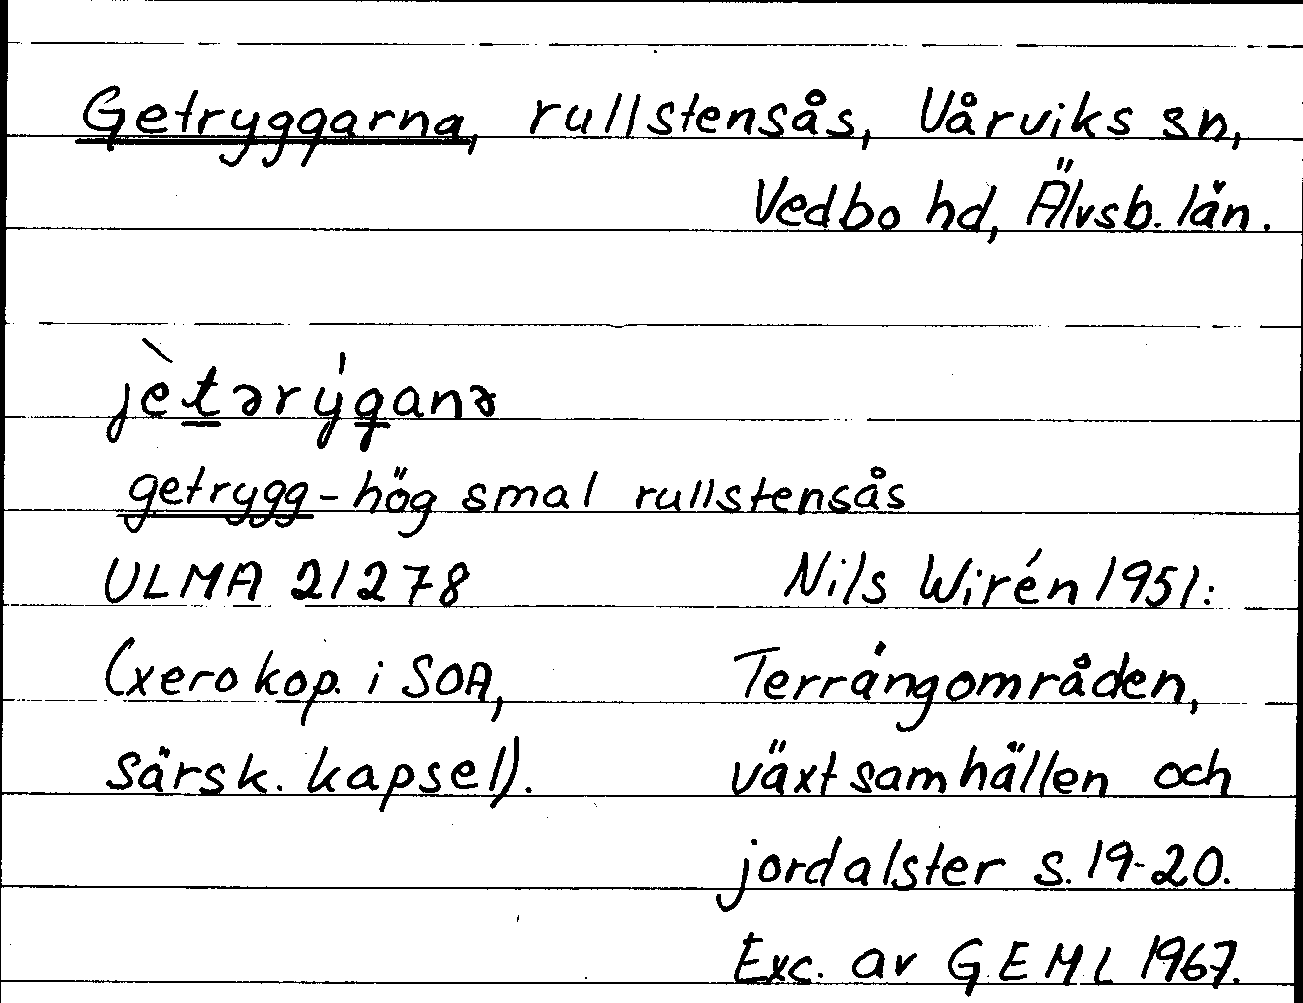 Getryggarna, rullstensås, Vårviks sn,
Vedbo hd, Älvsb. län.
jètərýganə
getrygg - hög smal rullstensås
ULMA 21278 Nils Wirén 1951:
(xerokop. i SOA, Terrängområden,
särsk. kapsel). växtsamhällen och
jordalster s. 19-20.
Exc. av GEML 1967.